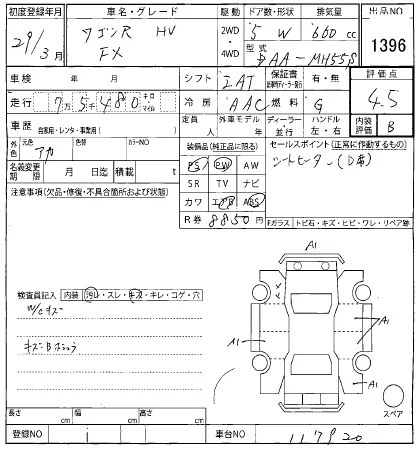 初度登録年月 車名・グレード 駆動 ドア数・形状 排気量 出品NO
29/3月 ワゴンR HV 2WD・4WD 5 W 660 cc 1396
FX 型式 DAA-MH55S
車検 年 月 シフト IAT 保証書 有・無 評価点
走行 7万5千480 キロ マイル 冷房 AAC 燃料 G 4.5
車歴 自家用・レンタ・事業用( ) 定員 人 外車モデル 年 ディーラー・並行 ハンドル 左・右 内装評価 B
外色 元色 アカ 色替 カラーNO 装備品(純正品に限る) セールスポイント(正常に作動するもの)
名義変更期限 月 日迄 積載 t PS PW AW シートヒーター(D席)
注意事項(欠品・修復・不具合箇所および状態) SR TV ナビ
カワ エアB ABS
R券 8850円 Fガラス トビ石・キズ・ヒビ・ワレ・リペア跡
A1
検査員記入 内装 汚レ・スレ・キズ・キレ・コゲ・穴
w/cキズ
A1 A1
キズ・B
A1
スペア
長さ cm 幅 cm 高さ cm
登録NO 車台NO 117920